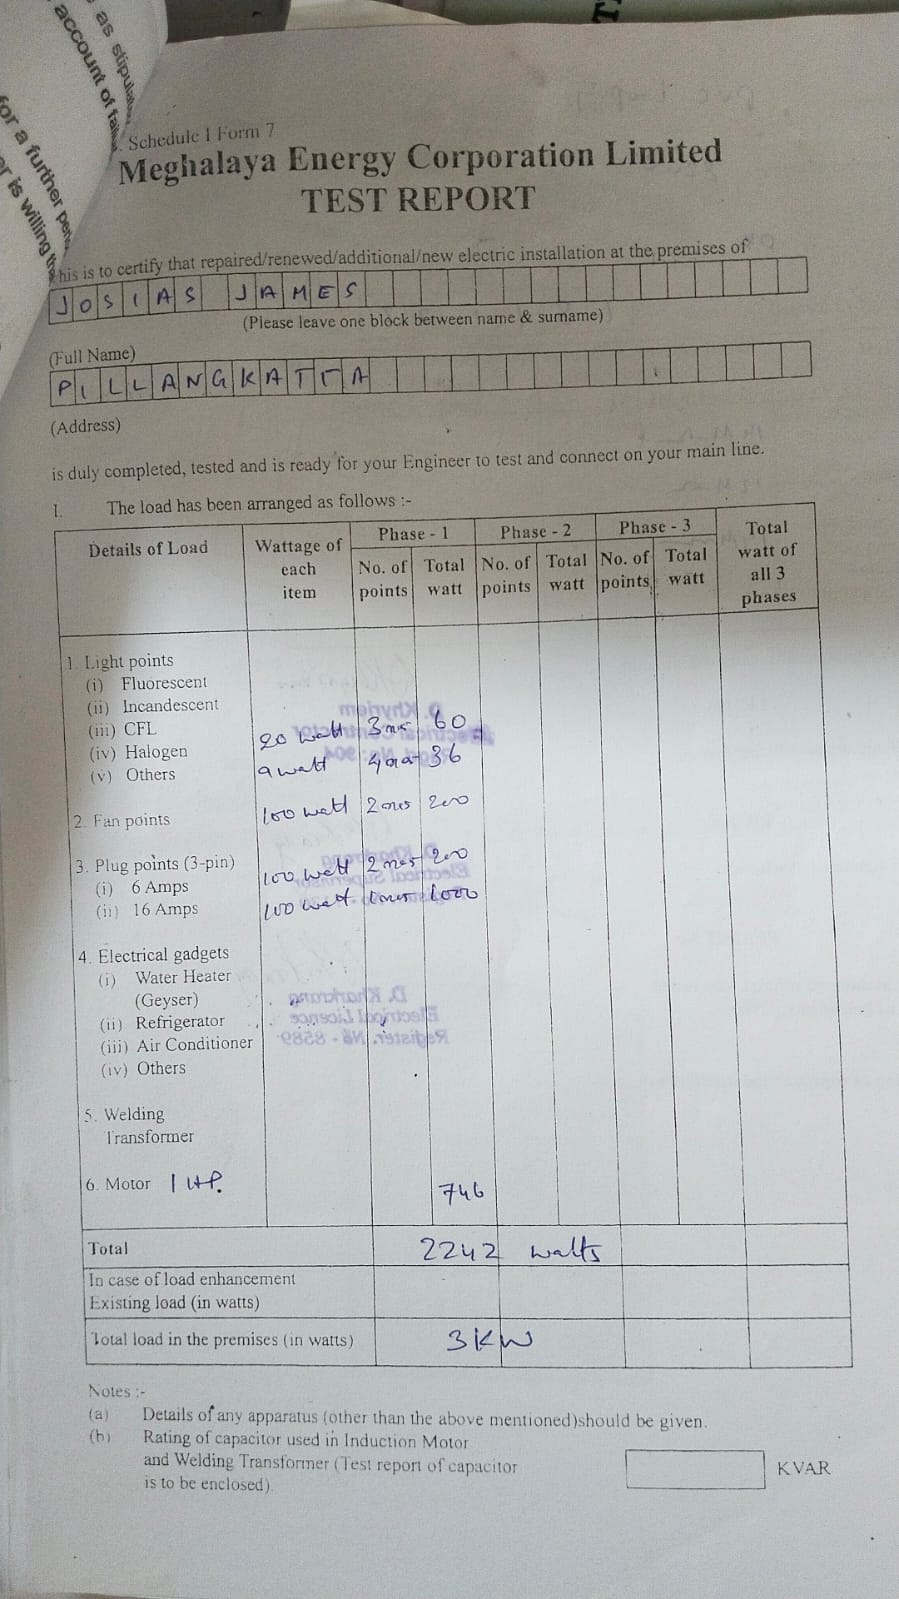 as stipula
account of fai
for a further per
er is willing
Schedule I Form 7
Meghalaya Energy Corporation Limited
TEST REPORT
his is to certify that repaired/renewed/additional/new electric installation at the premises of
JOSIAS JAMES
(Please leave one block between name & surname)
(Full Name)
PILLANGKATTA
(Address)
is duly completed, tested and is ready for your Engineer to test and connect on your main line.
1. The load has been arranged as follows :-
Details of Load Wattage of each item Phase - 1 Phase - 2 Phase - 3 Total watt of all 3 phases
No. of points Total watt No. of points Total watt No. of points Total watt
1. Light points
(i) Fluorescent
(ii) Incandescent
(iii) CFL 20 watt 3 nos 60
(iv) Halogen
(v) Others 9 watt 4 nos 36
2. Fan points 100 watt 2 nos 200
3. Plug points (3-pin)
(i) 6 Amps 100 watt 2 nos 200
(ii) 16 Amps 100 watt 1 nos 1000
4. Electrical gadgets
(i) Water Heater
(Geyser)
(ii) Refrigerator
(iii) Air Conditioner
(iv) Others
D. Kharkrang
Electrical Licence
Register. No - 8589
5. Welding
Transformer
6. Motor 1 HP. 746
Total 2242 watts
In case of load enhancement
Existing load (in watts)
Total load in the premises (in watts) 3KW
Notes :-
(a) Details of any apparatus (other than the above mentioned)should be given.
(b) Rating of capacitor used in Induction Motor
and Welding Transformer (Test report of capacitor KVAR
is to be enclosed)